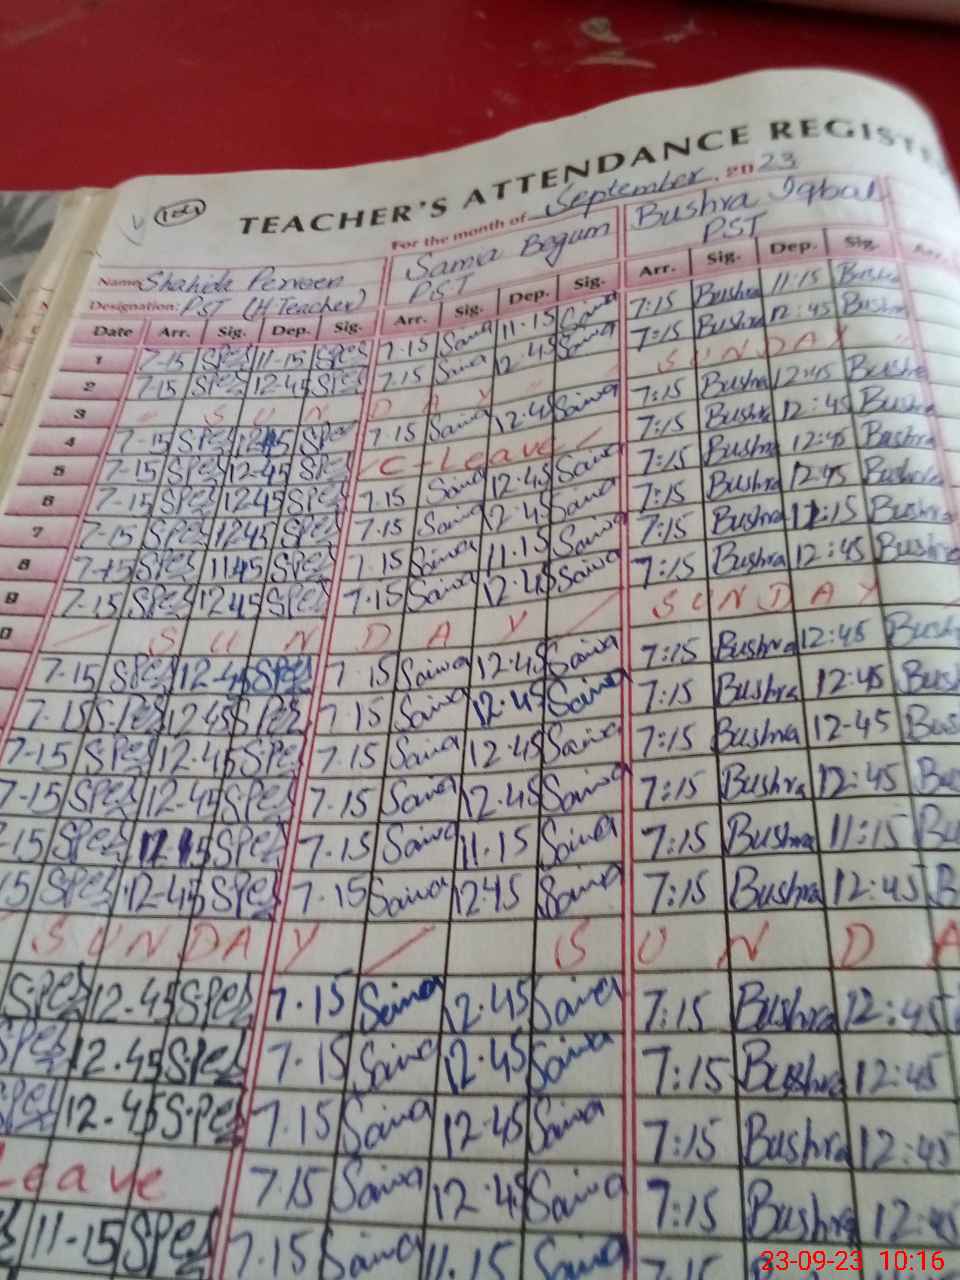 TEACHER'S ATTENDANCE REGISTE
For the month of September, 2023
Name Shahida Perveen Saima Begum Bushra Iqbal
Designation: PST (H Teacher) PST PST
Date Arr. Sig. Dep. Sig. Arr. Sig. Dep. Sig. Arr. Sig. Dep. Sig. Arr.
1 7-15 Spes 11-15 Spes 7.15 Saima 11.15 Saima 7:15 Bushra 11:15 Bushra
2 7-15 Spes 12-45 Spes 7.15 Saima 12.45 Saima 7:15 Bushra 12:45 Bushra
3 " S U N D A Y " S U N D A Y "
4 7-15 Spes 12-45 Spes 7.15 Saima 12.45 Saima 7:15 Bushra 12:45 Bushra
5 7-15 Spes 12-45 Spes C-Leave 7:15 Bushra 12:45 Bushra
6 7-15 Spes 1245 Spes 7.15 Saima 12.45 Saima 7:15 Bushra 12:45 Bushra
7 7-15 Spes 1245 Spes 7.15 Saima 12.45 Saima 7:15 Bushra 12:45 Bushra
8 7-15 Spes 1145 Spes 7.15 Saima 11.15 Saima 7:15 Bushra 11:15 Bushra
9 7-15 Spes 1245 Spes 7.15 Saima 12.45 Saima 7:15 Bushra 12:45 Bushra
/ S U N D A Y / S U N D A Y
7-15 Spes 12-45 Spes 7.15 Saima 12.45 Saima 7:15 Bushra 12:45 Bush
7-15 Spes 12-45 Spes 7.15 Saima 12.45 Saima 7:15 Bushra 12:45 Bus
7-15 Spes 12-45 Spes 7.15 Saima 12.45 Saima 7:15 Bushra 12-45 Bus
7-15 Spes 12-45 Spes 7.15 Saima 12.45 Saima 7:15 Bushra 12:45 Bu
-15 Spes Spes 7.15 Saima 11.15 Saima 7:15 Bushra 11:15 Bu
15 Spes 12-45 Spes 7.15 Saima 1245 Saima 7:15 Bushra 12:45 B
S U N D A Y / S U N D A
Spes 12-45 Spes 7.15 Saima 12.45 Saima 7:15 Bushra 12:45
Spes 12.45 Spes 7.15 Saima 12.45 Saima 7:15 Bushra 12:45
Spes 12.45 Spes 7.15 Saima 12.45 Saima 7:15 Bushra 12:45
Leave 7.15 Saima 12.45 Saima 7:15 Bushra 12:45
11-15 Spes 7.15 Saima 11.15 Saima 7:15
23-09-23 10:16